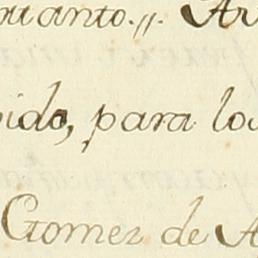 nianto.,, Ar
ido, para los
Gomez de A